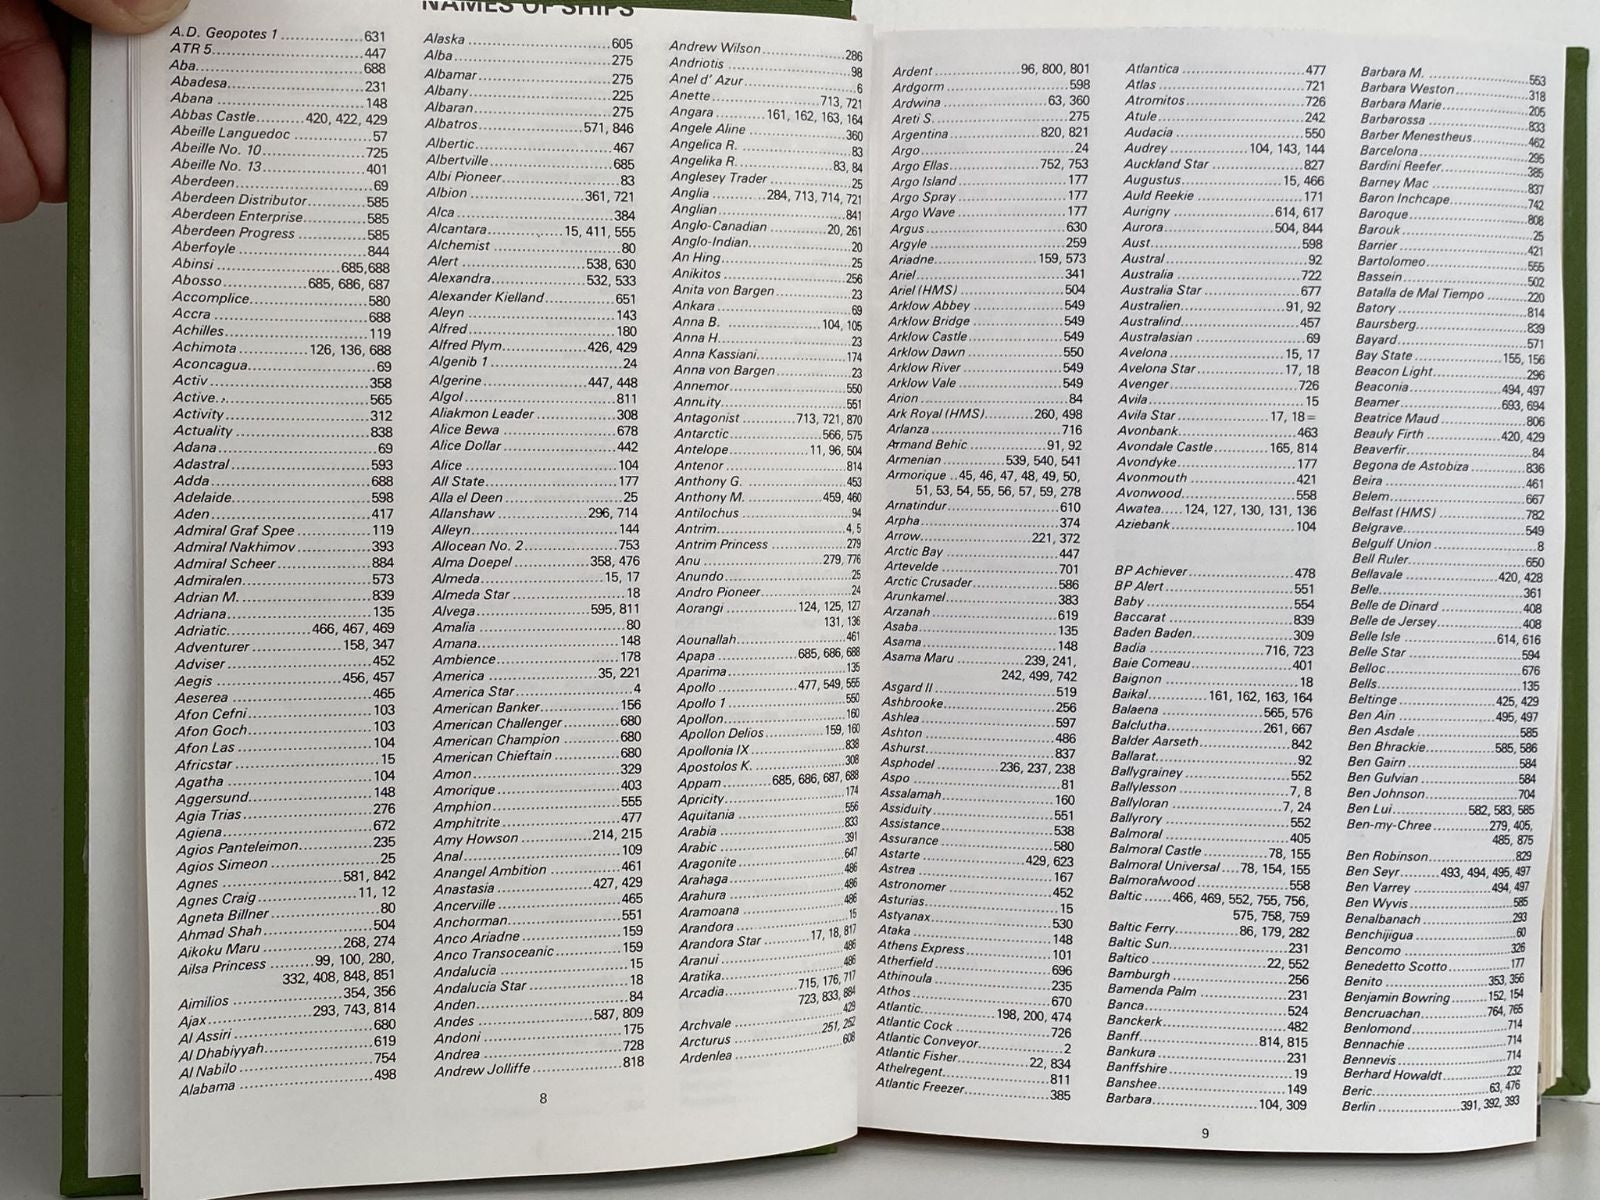 NAMES OF SHIPS
A.D. Geopotes 1 ..... 631
ATR 5 ..... 447
Aba ..... 688
Abadesa ..... 231
Abana ..... 148
Abbas Castle ..... 420, 422, 429
Abeille Languedoc ..... 57
Abeille No. 10 ..... 725
Abeille No. 13 ..... 401
Aberdeen ..... 69
Aberdeen Distributor ..... 585
Aberdeen Enterprise ..... 585
Aberdeen Progress ..... 585
Aberfoyle ..... 844
Abinsi ..... 685,688
Abosso ..... 685, 686, 687
Accomplice ..... 580
Accra ..... 688
Achilles ..... 119
Achimota ..... 126, 136, 688
Aconcagua ..... 69
Activ ..... 358
Active ..... 565
Activity ..... 312
Actuality ..... 838
Adana ..... 69
Adastral ..... 593
Adda ..... 688
Adelaide ..... 598
Aden ..... 417
Admiral Graf Spee ..... 119
Admiral Nakhimov ..... 393
Admiral Scheer ..... 884
Admiralen ..... 573
Adrian M. ..... 839
Adriana ..... 135
Adriatic ..... 466, 467, 469
Adventurer ..... 158, 347
Adviser ..... 452
Aegis ..... 456, 457
Aeserea ..... 465
Afon Cefni ..... 103
Afon Goch ..... 103
Afon Las ..... 104
Africstar ..... 15
Agatha ..... 104
Aggersund ..... 148
Agia Trias ..... 276
Agiena ..... 672
Agios Panteleimon ..... 235
Agios Simeon ..... 25
Agnes ..... 581, 842
Agnes Craig ..... 11, 12
Agneta Billner ..... 80
Ahmad Shah ..... 504
Aikoku Maru ..... 268, 274
Ailsa Princess ..... 99, 100, 280,
332, 408, 848, 851
Aimilios ..... 354, 356
Ajax ..... 293, 743, 814
Al Assiri ..... 680
Al Dhabiyyah ..... 619
Al Nabilo ..... 754
Alabama ..... 498
Alaska ..... 605
Alba ..... 275
Albamar ..... 275
Albany ..... 225
Albaran ..... 275
Albatros ..... 571, 846
Albertic ..... 467
Albertville ..... 685
Albi Pioneer ..... 83
Albion ..... 361, 721
Alca ..... 384
Alcantara ..... 15, 411, 555
Alchemist ..... 80
Alert ..... 538, 630
Alexandra ..... 532, 533
Alexander Kielland ..... 651
Aleyn ..... 143
Alfred ..... 180
Alfred Plym ..... 426, 429
Algenib 1 ..... 24
Algerine ..... 447, 448
Algol ..... 811
Aliakmon Leader ..... 308
Alice Bewa ..... 678
Alice Dollar ..... 442
Alice ..... 104
All State ..... 177
Alla el Deen ..... 25
Allanshaw ..... 296, 714
Alleyn ..... 144
Allocean No. 2 ..... 753
Alma Doepel ..... 358, 476
Almeda ..... 15, 17
Almeda Star ..... 18
Alvega ..... 595, 811
Amalia ..... 80
Amana ..... 148
Ambience ..... 178
America ..... 35, 221
America Star ..... 4
American Banker ..... 156
American Challenger ..... 680
American Champion ..... 680
American Chieftain ..... 680
Amon ..... 329
Amorique ..... 403
Amphion ..... 555
Amphitrite ..... 477
Amy Howson ..... 214, 215
Anal ..... 109
Anangel Ambition ..... 461
Anastasia ..... 427, 429
Ancerville ..... 465
Anchorman ..... 551
Anco Ariadne ..... 159
Anco Transoceanic ..... 159
Andalucia ..... 15
Andalucia Star ..... 18
Anden ..... 84
Andes ..... 587, 809
Andoni ..... 175
Andrea ..... 728
Andrew Jolliffe ..... 818
Andrew Wilson ..... 286
Andriotis ..... 98
Anel d' Azur ..... 6
Anette ..... 713, 721
Angara ..... 161, 162, 163, 164
Angele Aline ..... 360
Angelica R. ..... 83
Angelika R. ..... 83, 84
Anglesey Trader ..... 25
Anglia ..... 284, 713, 714, 721
Anglian ..... 841
Anglo-Canadian ..... 20, 261
Anglo-Indian ..... 20
An Hing ..... 25
Anikitos ..... 256
Anita von Bargen ..... 23
Ankara ..... 69
Anna B. ..... 104, 105
Anna H. ..... 23
Anna Kassiani ..... 174
Anna von Bargen ..... 23
Annemor ..... 550
Annuity ..... 551
Antagonist ..... 713, 721, 870
Antarctic ..... 566, 575
Antelope ..... 11, 96, 504
Antenor ..... 814
Anthony G. ..... 453
Anthony M. ..... 459, 460
Antilochus ..... 94
Antrim ..... 4, 5
Antrim Princess ..... 279
Anu ..... 279, 776
Anundo ..... 25
Andro Pioneer ..... 24
Aorangi ..... 124, 125, 127
131, 136
Aounallah ..... 461
Apapa ..... 685, 686, 688
Aparima ..... 135
Apollo ..... 477, 549, 555
Apollo 1 ..... 550
Apollon ..... 160
Apollon Delios ..... 159, 160
Apollonia IX ..... 838
Apostolos K. ..... 308
Appam ..... 685, 686, 687, 688
Apricity ..... 174
Aquitania ..... 556
Arabia ..... 833
Arabic ..... 391
Aragonite ..... 647
Arahaga ..... 486
Arahura ..... 486
Aramoana ..... 486
Arandora ..... 15
Arandora Star ..... 17, 18, 817
Aranui ..... 486
Aratika ..... 486
Arcadia ..... 715, 176, 717
723, 833, 884
Archvale ..... 429
Arcturus ..... 251, 252
Ardenlea ..... 608
8
Ardent ..... 96, 800, 801
Ardgorm ..... 598
Ardwina ..... 63, 360
Areti S. ..... 275
Argentina ..... 820, 821
Argo ..... 24
Argo Ellas ..... 752, 753
Argo Island ..... 177
Argo Spray ..... 177
Argo Wave ..... 177
Argus ..... 630
Argyle ..... 259
Ariadne ..... 159, 573
Ariel ..... 341
Ariel (HMS) ..... 504
Arklow Abbey ..... 549
Arklow Bridge ..... 549
Arklow Castle ..... 549
Arklow Dawn ..... 550
Arklow River ..... 549
Arklow Vale ..... 549
Arion ..... 84
Ark Royal (HMS) ..... 260, 498
Arlanza ..... 716
Armand Behic ..... 91, 92
Armenian ..... 539, 540, 541
Armorique ..... 45, 46, 47, 48, 49, 50,
51, 53, 54, 55, 56, 57, 59, 278
Arnatindur ..... 610
Arpha ..... 374
Arrow ..... 221, 372
Arctic Bay ..... 447
Artevelde ..... 701
Arctic Crusader ..... 586
Arunkamel ..... 383
Arzanah ..... 619
Asaba ..... 135
Asama ..... 148
Asama Maru ..... 239, 241,
242, 499, 742
Asgard II ..... 519
Ashbrooke ..... 256
Ashlea ..... 597
Ashton ..... 486
Ashurst ..... 837
Asphodel ..... 236, 237, 238
Aspo ..... 81
Assalamah ..... 160
Assiduity ..... 551
Assistance ..... 538
Assurance ..... 580
Astarte ..... 429, 623
Astrea ..... 167
Astronomer ..... 452
Asturias ..... 15
Astyanax ..... 530
Ataka ..... 148
Athens Express ..... 101
Atherfield ..... 696
Athinoula ..... 235
Athos ..... 670
Atlantic ..... 198, 200, 474
Atlantic Cock ..... 726
Atlantic Conveyor ..... 2
Atlantic Fisher ..... 22, 834
Athelregent ..... 811
Atlantic Freezer ..... 385
Atlantica ..... 477
Atlas ..... 721
Atromitos ..... 726
Atule ..... 242
Audacia ..... 550
Audrey ..... 104, 143, 144
Auckland Star ..... 827
Augustus ..... 15, 466
Auld Reekie ..... 171
Aurigny ..... 614, 617
Aurora ..... 504, 844
Aust ..... 598
Austral ..... 92
Australia ..... 722
Australia Star ..... 677
Australien ..... 91, 92
Australind ..... 457
Australasian ..... 69
Avelona ..... 15, 17
Avelona Star ..... 17, 18
Avenger ..... 726
Avila ..... 15
Avila Star ..... 17, 18=
Avonbank ..... 463
Avondale Castle ..... 165, 814
Avondyke ..... 177
Avonmouth ..... 421
Avonwood ..... 558
Awatea ..... 124, 127, 130, 131, 136
Aziebank ..... 104
BP Achiever ..... 478
BP Alert ..... 551
Baby ..... 554
Baccarat ..... 839
Baden Baden ..... 309
Badia ..... 716, 723
Baie Comeau ..... 401
Baignon ..... 18
Baikal ..... 161, 162, 163, 164
Balaena ..... 565, 576
Balclutha ..... 261, 667
Balder Aarseth ..... 842
Ballarat ..... 92
Ballygrainey ..... 552
Ballylesson ..... 7, 8
Ballyloran ..... 7, 24
Ballyrory ..... 552
Balmoral ..... 405
Balmoral Castle ..... 78, 155
Balmoral Universal ..... 78, 154, 155
Balmoralwood ..... 558
Baltic ..... 466, 469, 552, 755, 756,
575, 758, 759
Baltic Ferry ..... 86, 179, 282
Baltic Sun ..... 231
Baltico ..... 22, 552
Bamburgh ..... 256
Bamenda Palm ..... 231
Banca ..... 524
Banckerk ..... 482
Banff ..... 814, 815
Bankura ..... 231
Banffshire ..... 19
Banshee ..... 149
Barbara ..... 104, 309
Barbara M. ..... 553
Barbara Weston ..... 318
Barbara Marie ..... 205
Barbarossa ..... 833
Barber Menestheus ..... 462
Barcelona ..... 295
Bardini Reefer ..... 385
Barney Mac ..... 837
Baron Inchcape ..... 742
Baroque ..... 808
Barouk ..... 25
Barrier ..... 421
Bartolomeo ..... 555
Bassein ..... 502
Batalla de Mal Tiempo ..... 220
Batory ..... 814
Baursberg ..... 839
Bayard ..... 571
Bay State ..... 155, 156
Beacon Light ..... 296
Beaconia ..... 494, 497
Beamer ..... 693, 694
Beatrice Maud ..... 806
Beauly Firth ..... 420, 429
Beaverfir ..... 84
Begona de Astobiza ..... 836
Beira ..... 461
Belem ..... 667
Belfast (HMS) ..... 782
Belgrave ..... 549
Belgulf Union ..... 8
Bell Ruler ..... 650
Bellavale ..... 420, 428
Belle ..... 361
Belle de Dinard ..... 408
Belle de Jersey ..... 408
Belle Isle ..... 614, 616
Belle Star ..... 594
Belloc ..... 676
Bells ..... 135
Beltinge ..... 425, 429
Ben Ain ..... 495, 497
Ben Asdale ..... 585
Ben Bhrackie ..... 585, 586
Ben Gairn ..... 584
Ben Gulvian ..... 584
Ben Johnson ..... 704
Ben Lui ..... 582, 583, 585
Ben-my-Chree ..... 279, 405,
485, 875
Ben Robinson ..... 829
Ben Seyr ..... 493, 494, 495, 497
Ben Varrey ..... 494, 497
Ben Wyvis ..... 585
Benalbanach ..... 293
Benchijigua ..... 60
Bencomo ..... 326
Benedetto Scotto ..... 177
Benito ..... 353, 356
Benjamin Bowring ..... 152, 154
Bencruachan ..... 764, 765
Benlomond ..... 714
Bennachie ..... 714
Bennevis ..... 714
Berhard Howaldt ..... 232
Beric ..... 63, 476
Berlin ..... 391, 392, 393
9